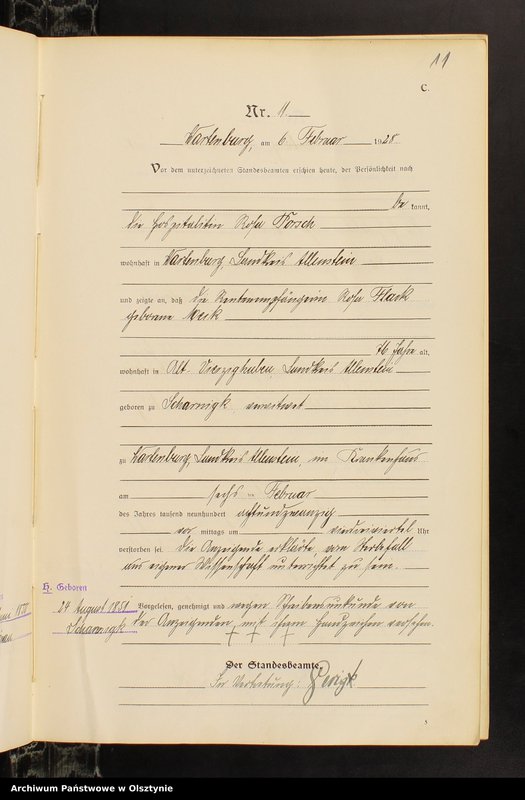 11
C.
Nr. 11
Wartenburg, am 6 Februar 1928
Vor dem unterzeichneten Standesbeamten erschien heute, der Persönlichkeit nach
be kannt,
die Hospitalitin Rosa
wohnhaft in Wartenburg, Landkreis Allenstein
und zeigte an, daß die Rentenempfängerin Rosa
geborene
76 Jahre alt,
wohnhaft in Alt Vierzighuben Landkreis Allenstein
geboren zu Scharnigk verwitwet
zu Wartenburg, Landkreis Allenstein, im Krankenhaus
am sechs ten Februar
des Jahres tausend neunhundert achtundzwanzig
vor mittags um Uhr
verstorben sei. Die Anzeigende erklärte, vom Sterbefall
aus eigener Wissenschaft unterrichtet zu sein.
H. Geboren
24 August 1851
Scharnigk
Vorgelesen, genehmigt und wegen Schreibensunkunde von
der Anzeigenden mit ihrem Handzeichen versehen.
† † †
Der Standesbeamte.
In Vertretung:
Archiwum Państwowe w Olsztynie